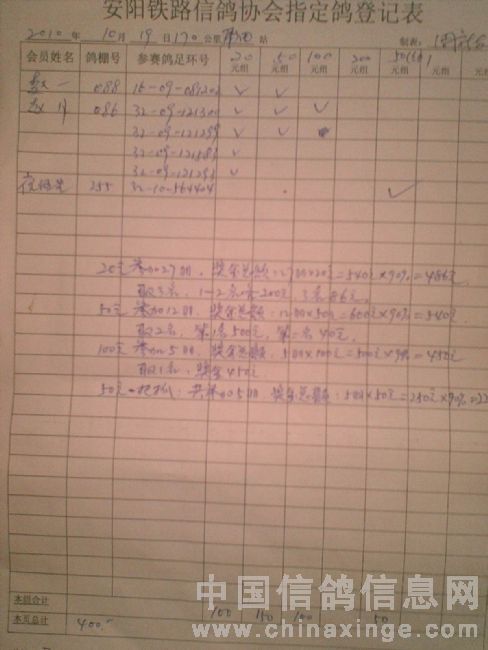 安阳铁路信鸽协会指定鸽登记表
2010 年 10 月 19 日 170 公里 站 制表:
会员姓名 鸽棚号 参赛鸽足环号 20元组 50元组 100元组 200元组 元组
088 16-09- ✓ ✓
086 32-09-121300 ✓ ✓ ✓
32-09-121299 ✓ ✓
32-09-121583 ✓
32-09-121293 ✓
255 32-10-564404 ✓
20元 参加27羽，奖金总额：27羽×20元=540元×90%=486元
取3名，1-2名各200元，3名86元。
50元 参加12羽 奖金总额：12羽×50元=600元×90%=540元
取2名，第1名500元，第二名40元。
100元 参加5羽 奖金总额：5羽×100元=500元×90%=450元
取1名，奖金450元
50元一把抓：共参加5羽 奖金总额：5羽×50元=250元×90%=
本组合计
本页总计 400.- 100 150 100 50
中国信鸽信息网
www.chinaxinge.com